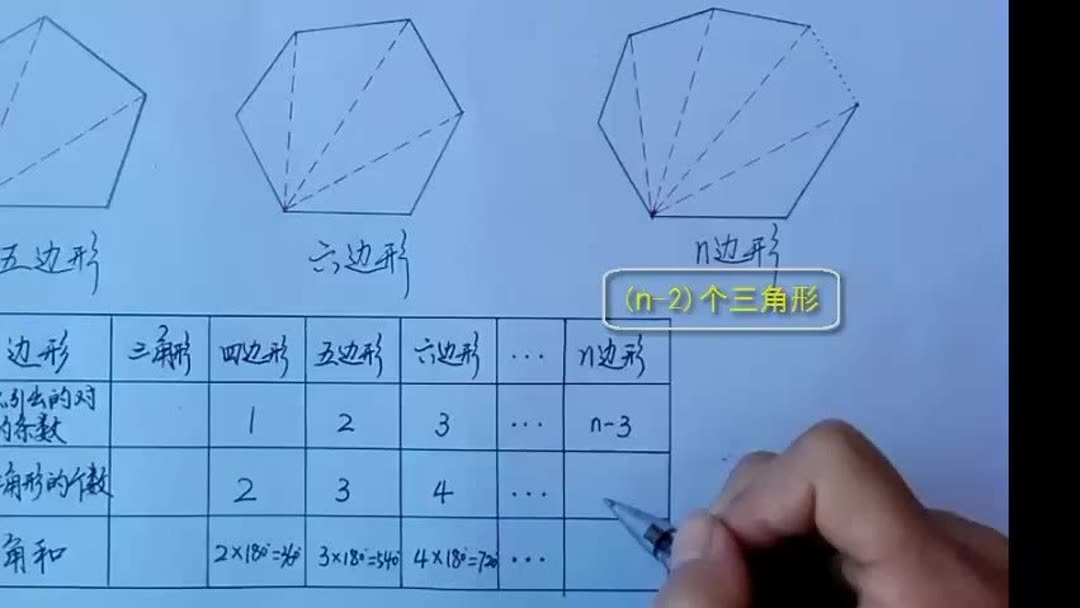 五边形 六边形 n边形
(n-2)个三角形
边形 三角形 四边形 五边形 六边形 ... n边形
引出的对
的条数 1 2 3 ... n-3
角形的个数 2 3 4 ...
角和 2×180°=360° 3×180°=540° 4×180°=720° ...